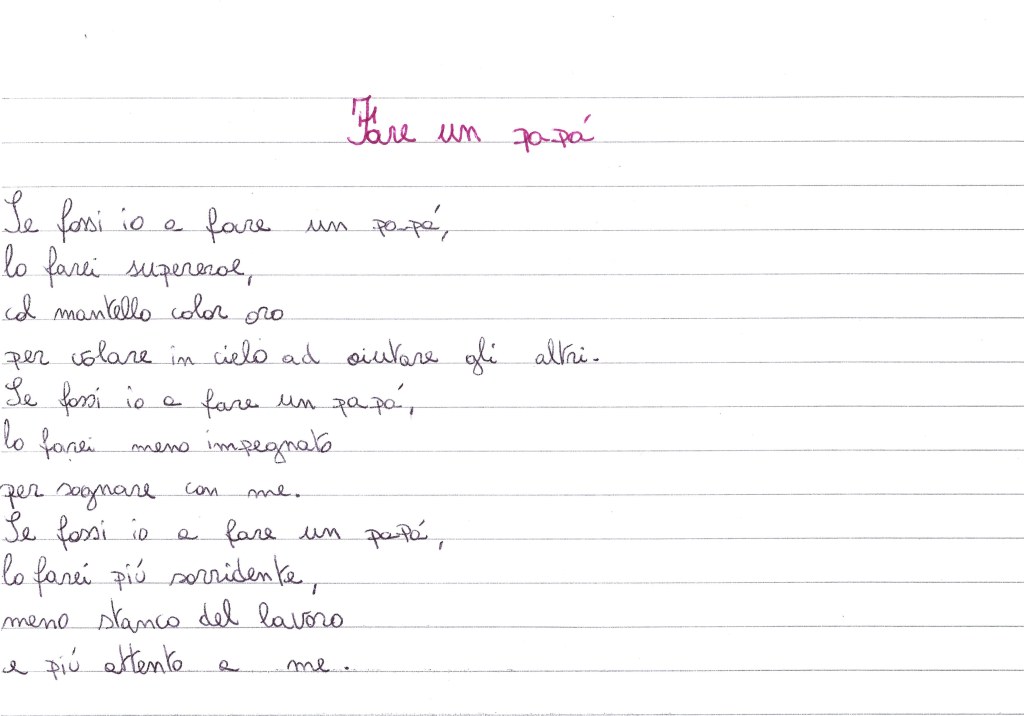 Fare un papá
Se fossi io a fare un papá,
lo farei supereroe,
col mantello color oro
per volare in cielo ad aiutare gli altri.
Se fossi io a fare un papá,
lo farei meno impegnato
per sognare con me.
Se fossi io a fare un papá,
lo farei piú sorridente,
meno stanco del lavoro
e piú attento a me.